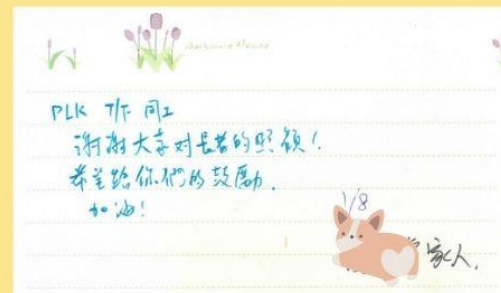 PLK 7/F 同工
谢谢大家对長者的照顧！
希望給你們的鼓勵.
加油!
1/8
家人.